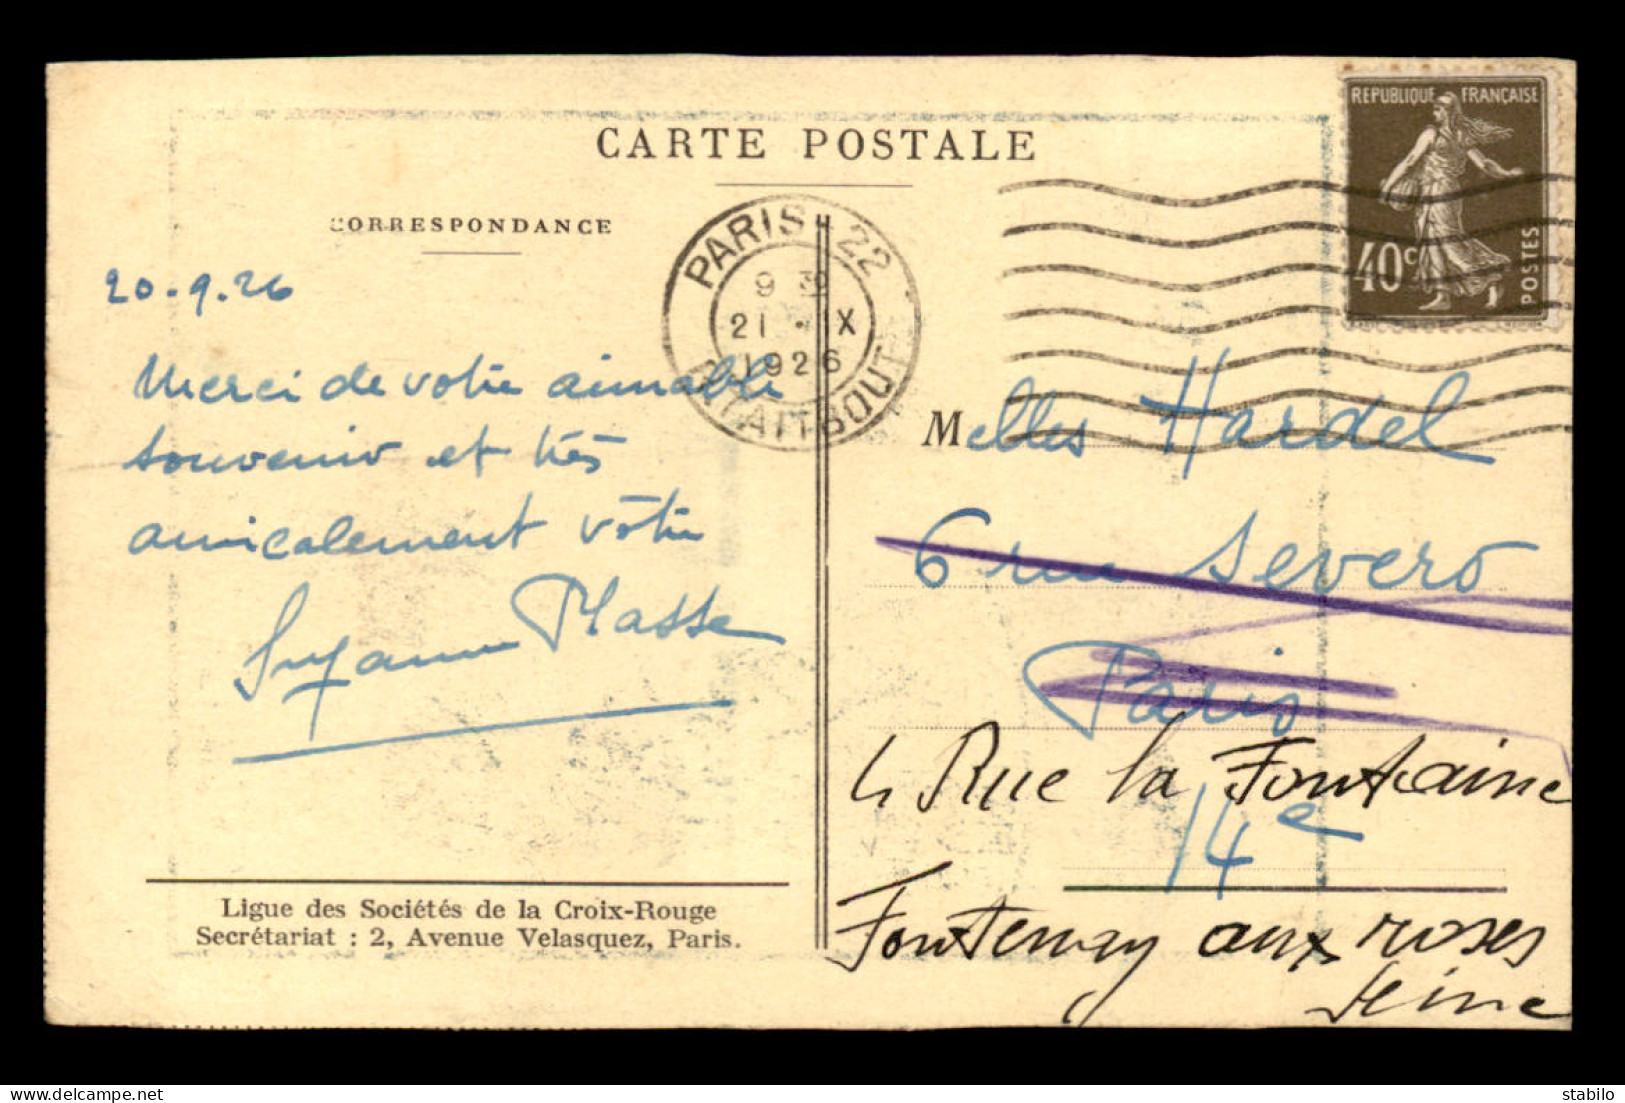 CARTE POSTALE
CORRESPONDANCE
20.9.26
Merci de votre aimable
souvenir et très
amicalement vôtre
Suzanne Masse
Ligue des Sociétés de la Croix-Rouge
Secrétariat : 2, Avenue Velasquez, Paris.
PARIS 22
9 30
21 - IX
1926
R. TAITBOUT
REPUBLIQUE FRANÇAISE
40c
POSTES
Melles Hardel
6 rue Severo
Paris
4 Rue la Fontaine
14e
Fontenay aux roses
Seine
stabilo